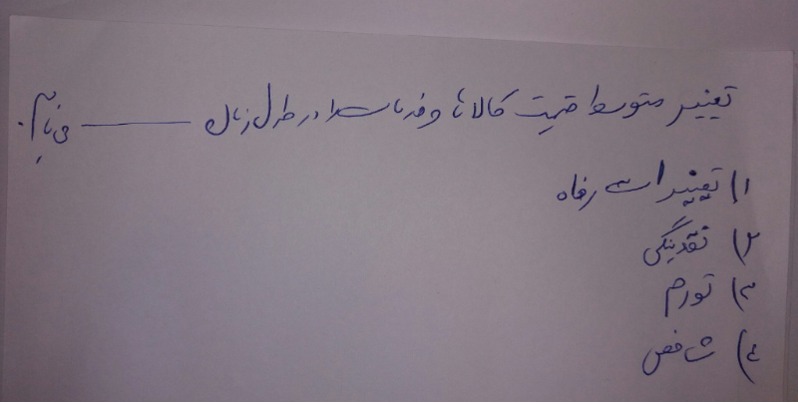 تغییر متوسط قیمت کالاها و خدمات را در طول زمان ــــــــ می‌نامیم.
۱) تغییرات رفاه
۲) نقدینگی
۳) تورم
۴) شاخص